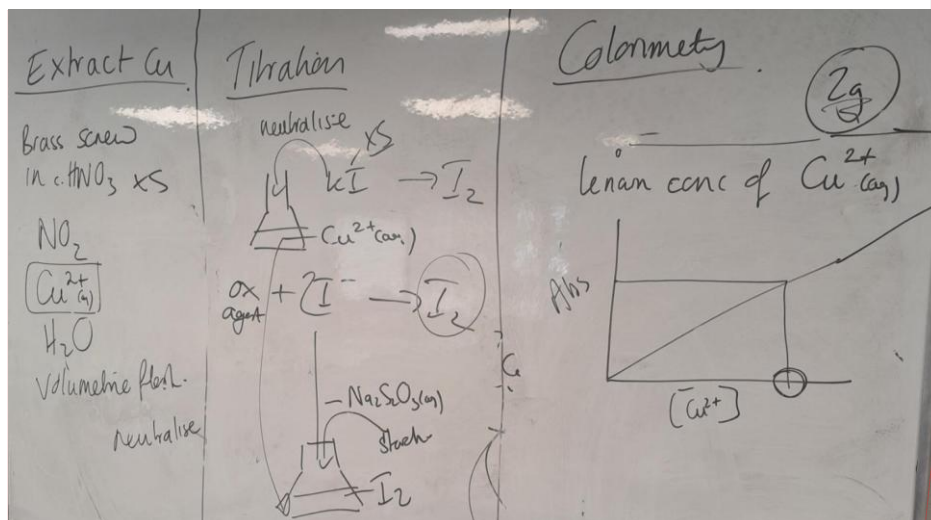 Extract Cu
Brass screw
in c.HNO3 xs
NO2
Cu2+(aq)
H2O
volumetric flask.
neutralise
Titration
neutralise
xs
kI → I2
Cu2+(aq)
ox agent + 2I- → I2
Na2S2O3(aq)
starch
I2
Colorimetry.
2g
conc of Cu2+(aq)
Abs
[Cu2+]